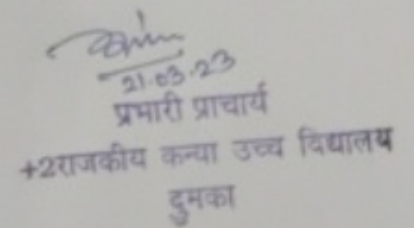 21.03.23
प्रभारी प्राचार्य
+2राजकीय कन्या उच्च विद्यालय
दुमका